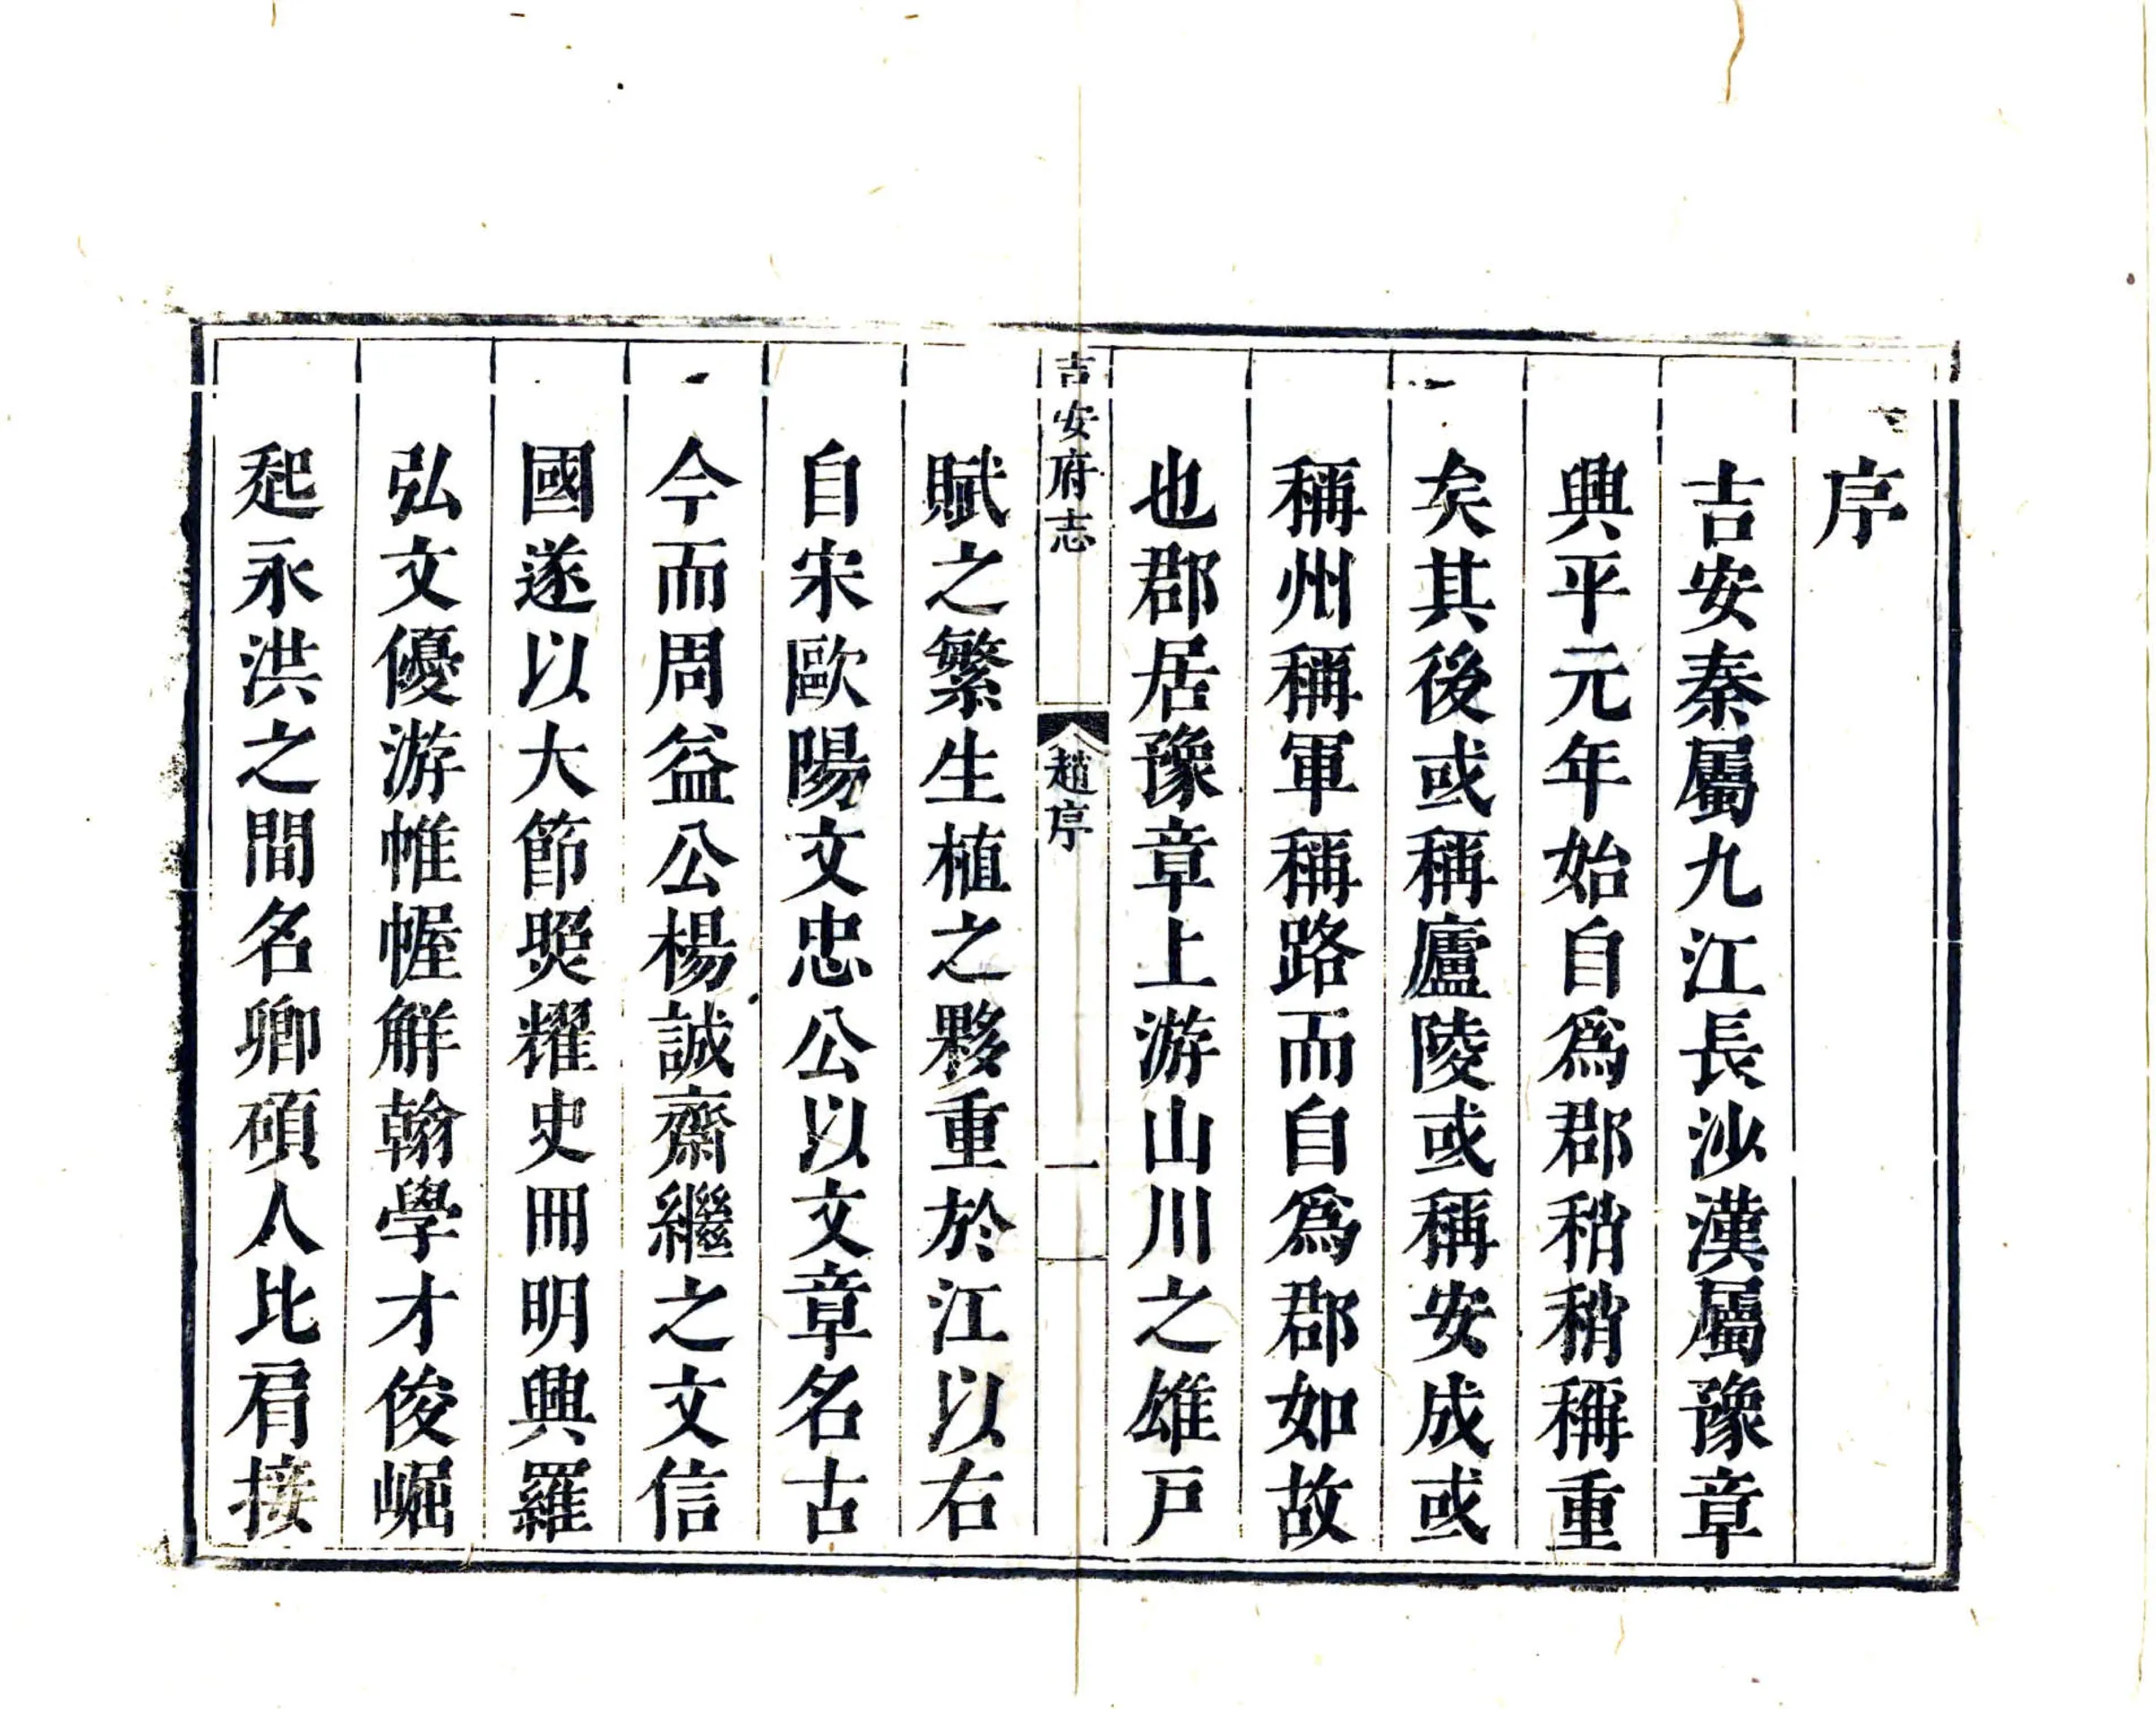 序
吉安秦屬九江長沙漢屬豫章
興平元年始自爲郡稍稍稱重
矣其後或稱廬陵或稱安成或
稱州稱軍稱路而自爲郡如故
也郡居豫章上游山川之雄戸
吉安府志 趙序 一
賦之繁生植之夥重於江以右
自宋歐陽文忠公以文章名古
今而周益公楊誠齋繼之文信
國遂以大節煚耀史冊明興羅
弘文優游帷幄解翰學才俊崛
起永洪之間名卿碩人比肩接